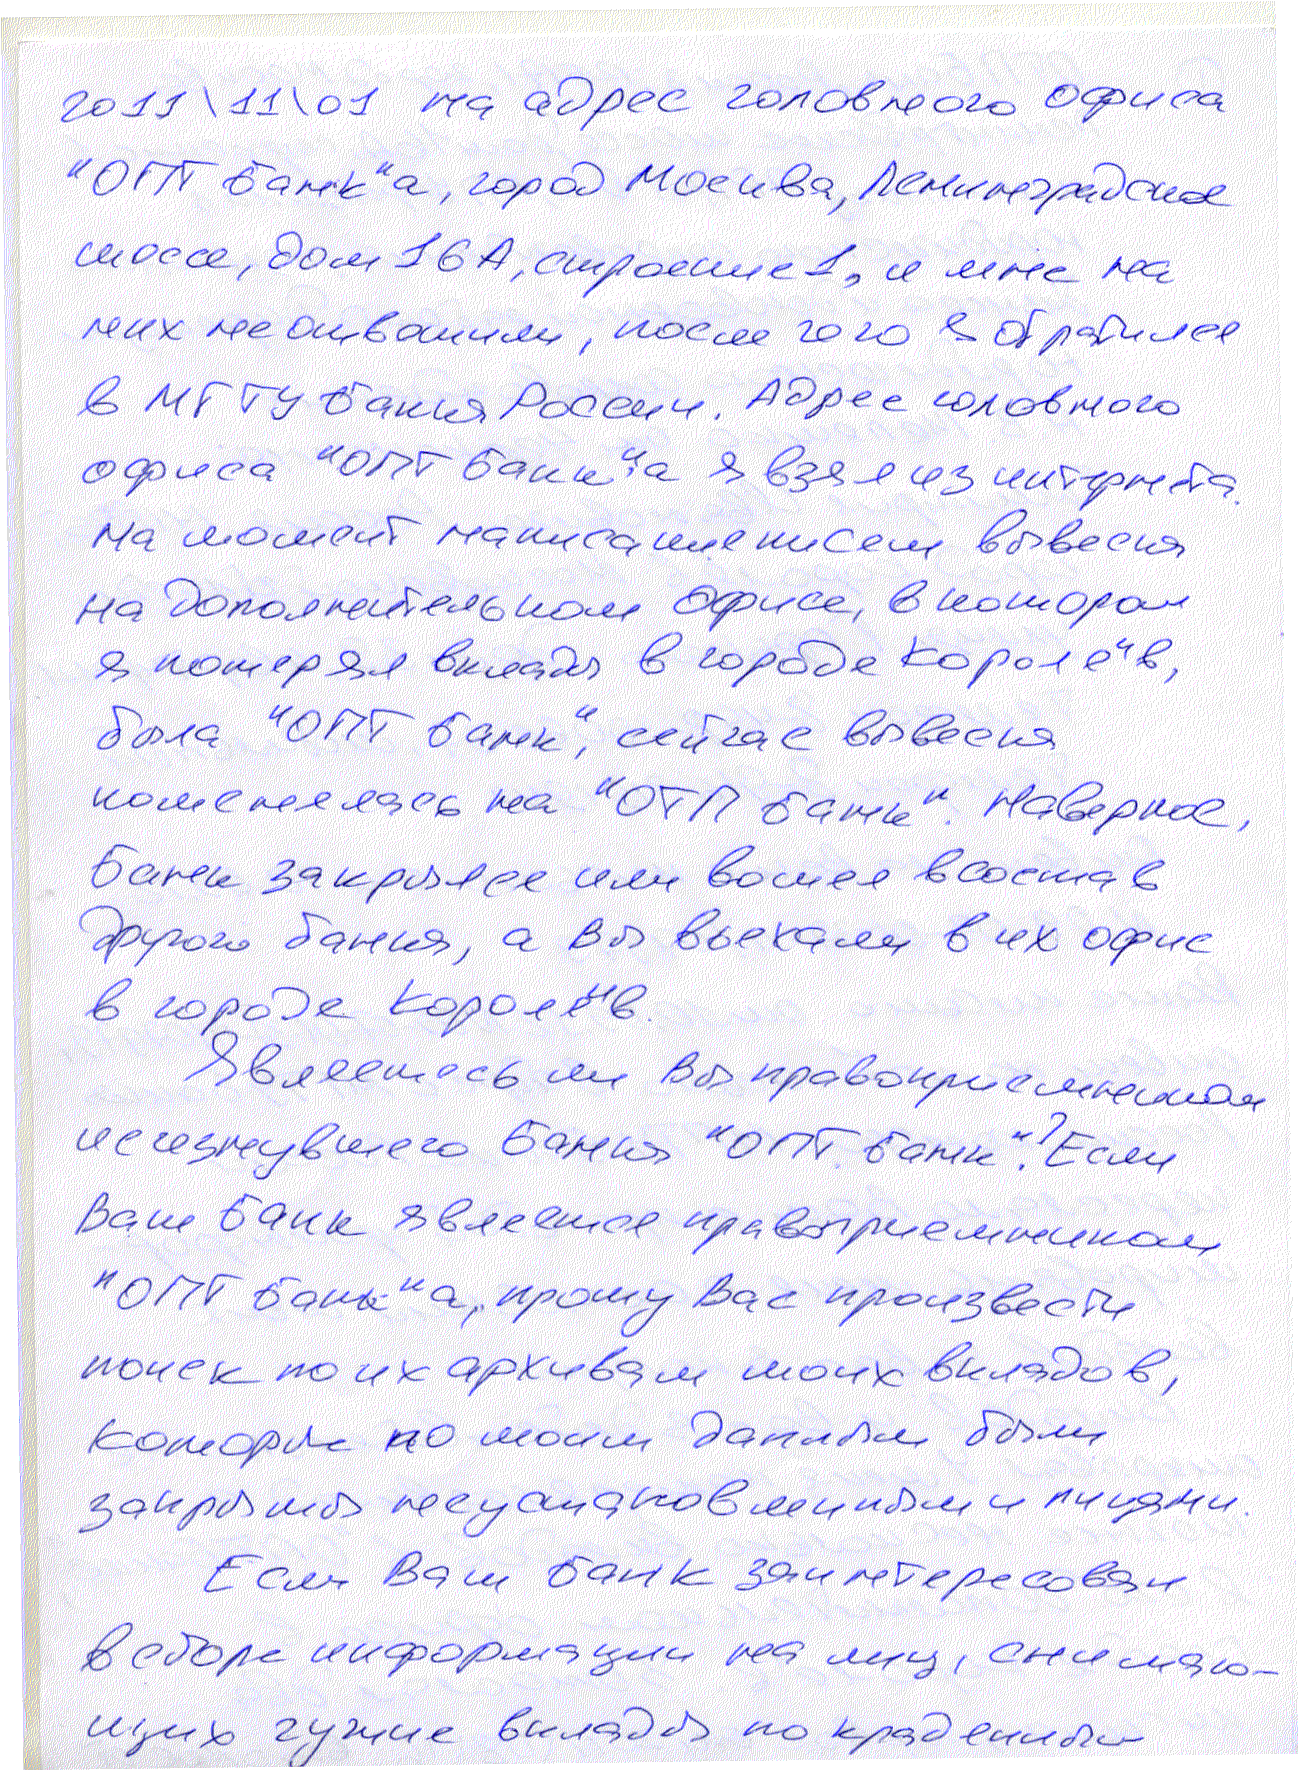 2011\11\01 на адрес головного офиса
"ОПТ банк"а, город Москва, Ленинградское
шоссе, дом 16А, строение 1, и мне на
них не отвечали, после чего я обратился
в МГТУ банка России. Адрес головного
офиса "ОПТ банк"а я взял из интернета.
На момент написания писем вывеска
на дополнительном офисе, в котором
я потерял вклады в городе Королёв,
была "ОПТ банк", сейчас вывеска
поменялась на "ОТП банк". Наверное,
банк закрылся или вошел в состав
другого банка, а Вы въехали в их офис
в городе Королёв.
Являетесь ли Вы правоприемником
исчезнувшего банка "ОПТ банк"? Если
Ваш банк является правоприемником
"ОПТ банк"а, прошу Вас произвести
поиск по их архивам моих вкладов,
которые по моим данным были
закрыты неустановленными лицами.
Если Ваш банк заинтересован
в сборе информации на лиц, снимаю-
щих чужие вклады по краденным